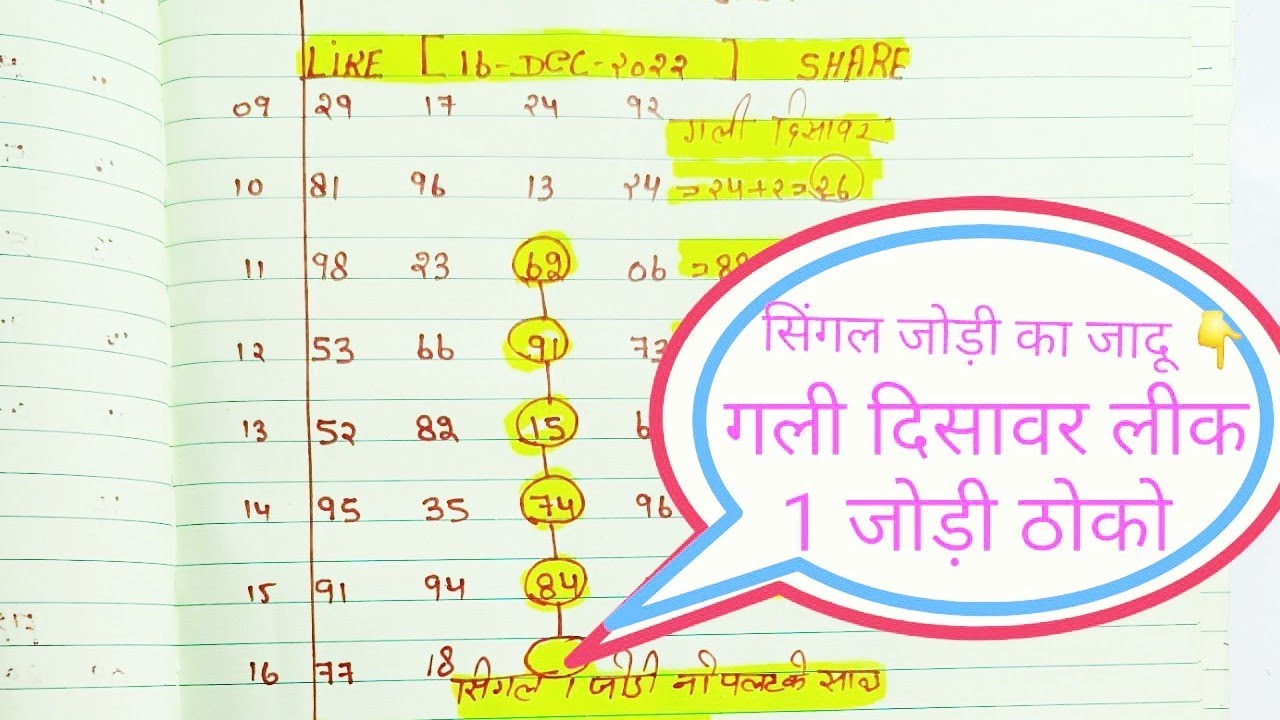 LIKE [ 16-DEC-2022 ] SHARE
09 29 17 24 92
गली दिसावर
10 81 96 13 24 =24+2=26
11 98 23 62 06
12 53 66 91 73
13 52 82 15 6
14 95 35 74 96
15 91 94 84
16 77 18
सिंगल 1 जोडी नो पलटके साथ
सिंगल जोड़ी का जादू 👇
गली दिसावर लीक
1 जोड़ी ठोको